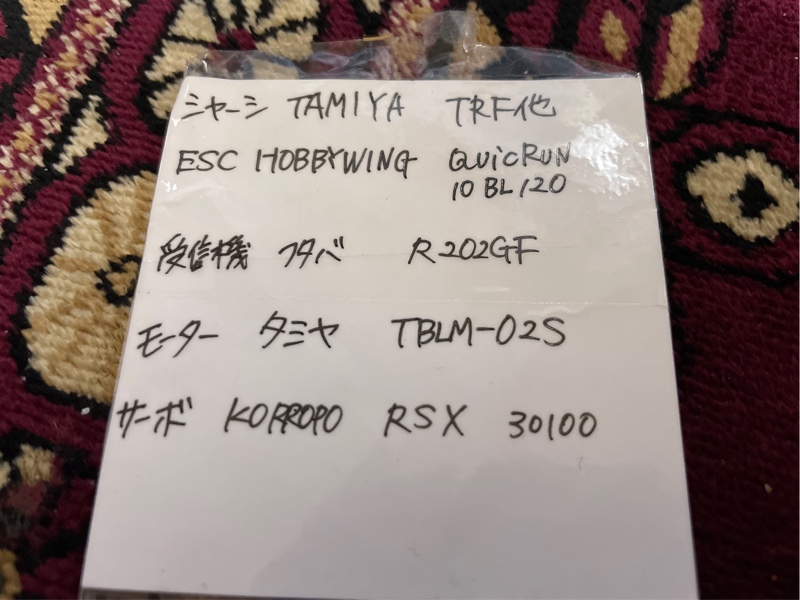 シャーシ TAMIYA TRF他
ESC HOBBYWING QUICRUN
10 BL 120
受信機 フタバ R202GF
モーター タミヤ TBLM-02S
サーボ KORROPO RSX 30100